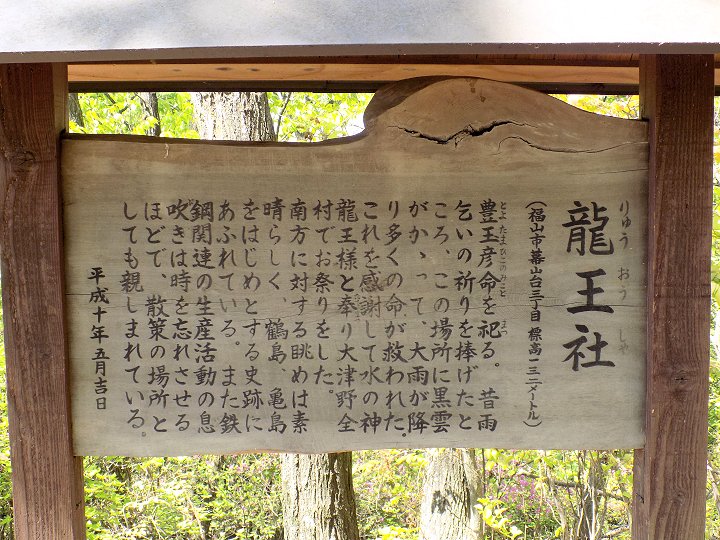 りゅうおうしゃ
龍王社
(福山市幕山台三丁目 標高一三二メートル)
とよたまひこのみこと まつ
豊玉彦命を祀る。 昔雨
乞いの祈りを捧げたと
ころ、この場所に黒雲
がかゝって、大雨が降
り多くの命が救われた。
これを感謝して水の神
龍王様と奉り大津野全
村でお祭りをした。
南方に対する眺めは素
晴らしく、鶴島、亀島
をはじめとする史跡に
あふれている。 また鉄
鋼関連の生産活動の息
吹きは時を忘れさせる
ほどで、散策の場所と
しても親しまれている。
平成十年五月吉日